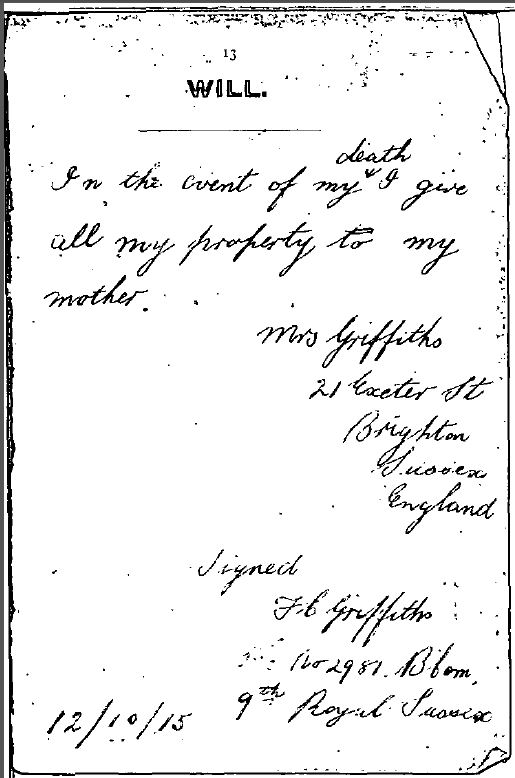 13
WILL.
In the event of my death I give
all my property to my
mother.
Mrs Griffiths
21 Exeter St
Brighton
Sussex
England
Signed
F C Griffiths
No 2981. B Com.
9th Royal Sussex
12/10/15